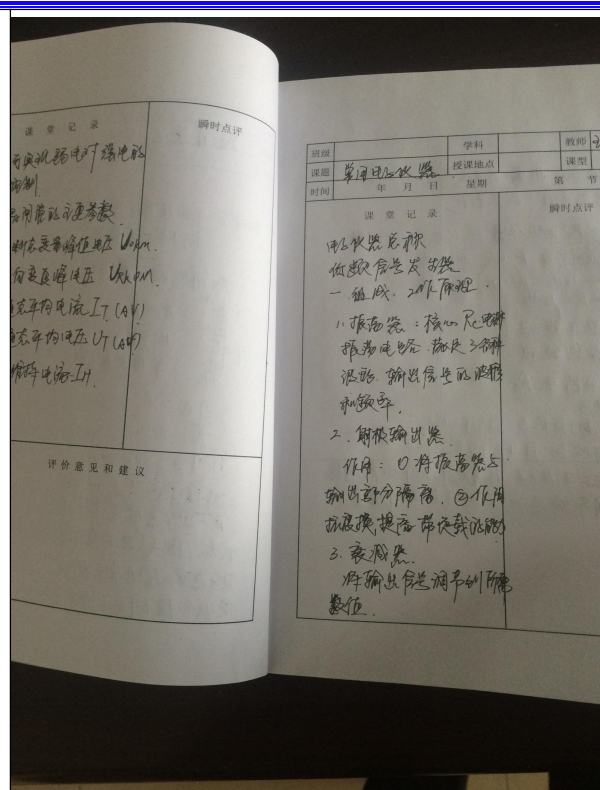 课堂记录 瞬时点评
断态重复峰值电压 UDRM.
通态平均电流 IT (AV)
通态平均电压 UT (AV)
维持电流 IH
评价意见和建议
班级 学科 教师
课题 常用电子仪器 授课地点 课型
时间 年 月 日 星期 第 节
课堂记录 瞬时点评
电子仪器总称
低频信号发生器
一. 组成. 工作原理.
1. 振荡器: 核心 Rc
振荡电路. 3
选频. 输出信号的波形
和频率.
2. 射极输出器.
作用: ① 将振荡器与
输出部分隔离. ② 作阻
抗变换, 提高带负载的能力
3. 衰减器.
将输出信号调节到所需
数值.